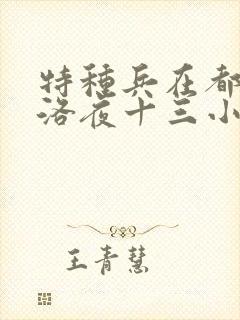 特種兵在都
洛夜十三小
王青慧